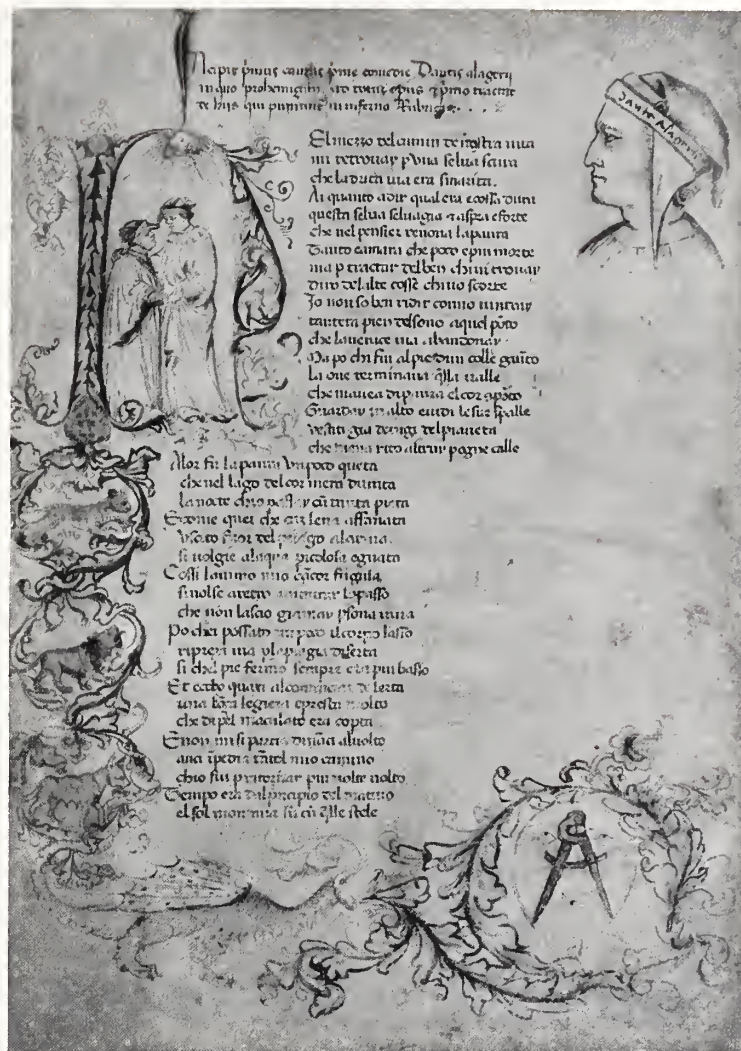 Incipit primus comedie Dantis alagerii
in quo prohemigatur totum opus et primo tractat
de hiis qui puniuntur in inferno Rubrica
Dante Alageri
El mezzo del camin de nostra uita
mi retrouai per una selua scura
che la drita uia era smarita.
Ai quanto a dir qual era e cossa dura
questa selua seluagia e aspra e forte
che nel pensier renoua la paura
Tanto e amara che poco e piu morte
ma per tractar del ben ch iui trouai
diro de l alte cosse ch io scorte
Io non so ben ridir como intrai
tant era pien del sono a quel ponto
che la uerace uia abandonai
Ma po ch i fui al pie d un colle gionto
la oue terminaua quella ualle
che m auea di paura el cor
Guardai in alto e uidi le sue spalle
uestiti gia de del pianeta
che mena rito altrui per ogne calle
Alor fu la paura un poco queta
che nel lago del cor m era durata
la nocte ch io passai cum tanta pieta
E come quei che lena affanata
uscito fuor del a la riua
si uolgie a l aqua picolosa e guata
Cossi l animo mio ancor fugiua
si uolse aretro a mirar lo passo
che non lascio giamai persona uiua
Po ch ei possato un poco il corpo lasso
ripresi uia per la piagia diserta
si che l pie fermo sempre era piu basso
Et ecco quasi al cominciar de l erta
una legiera e presta molto
che di pel maculato era coperta
E non mi si partia dinanci al uolto
anci impedia tanto el mio camino
ch io fui per ritornar piu uolte uolto
Tempo era dal principio del matino
e l sol montaua su cum quelle stele